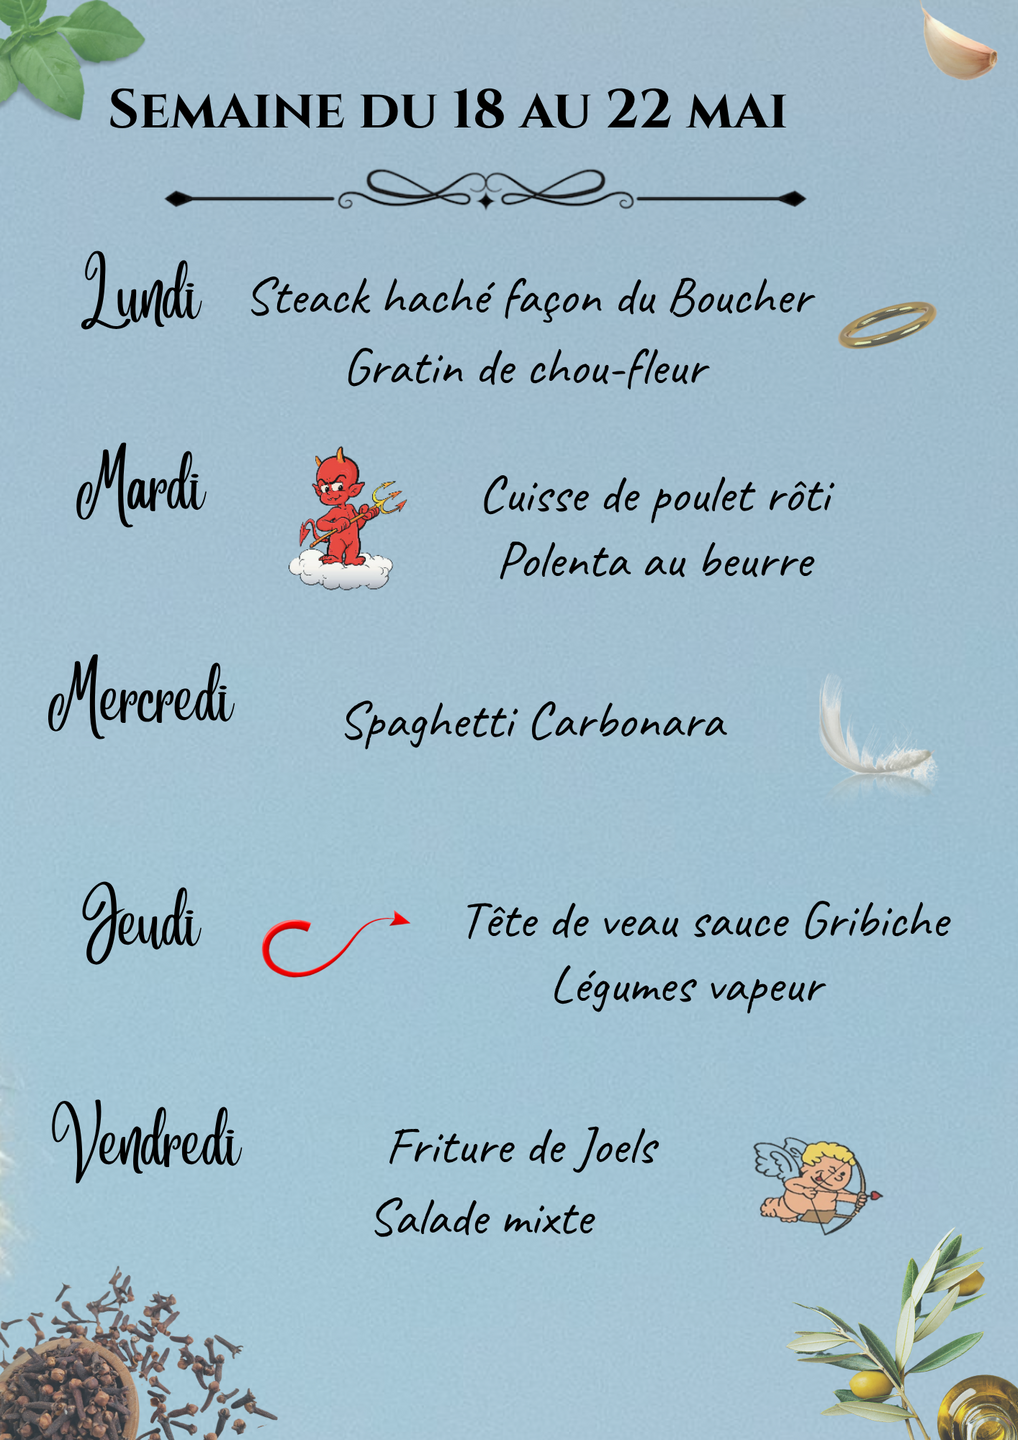 Semaine du 18 au 22 mai
Lundi
Steack haché façon du Boucher
Gratin de chou-fleur
Mardi
Cuisse de poulet rôti
Polenta au beurre
Mercredi
Spaghetti Carbonara
Jeudi
Tête de veau sauce Gribiche
Légumes vapeur
Vendredi
Friture de Joels
Salade mixte